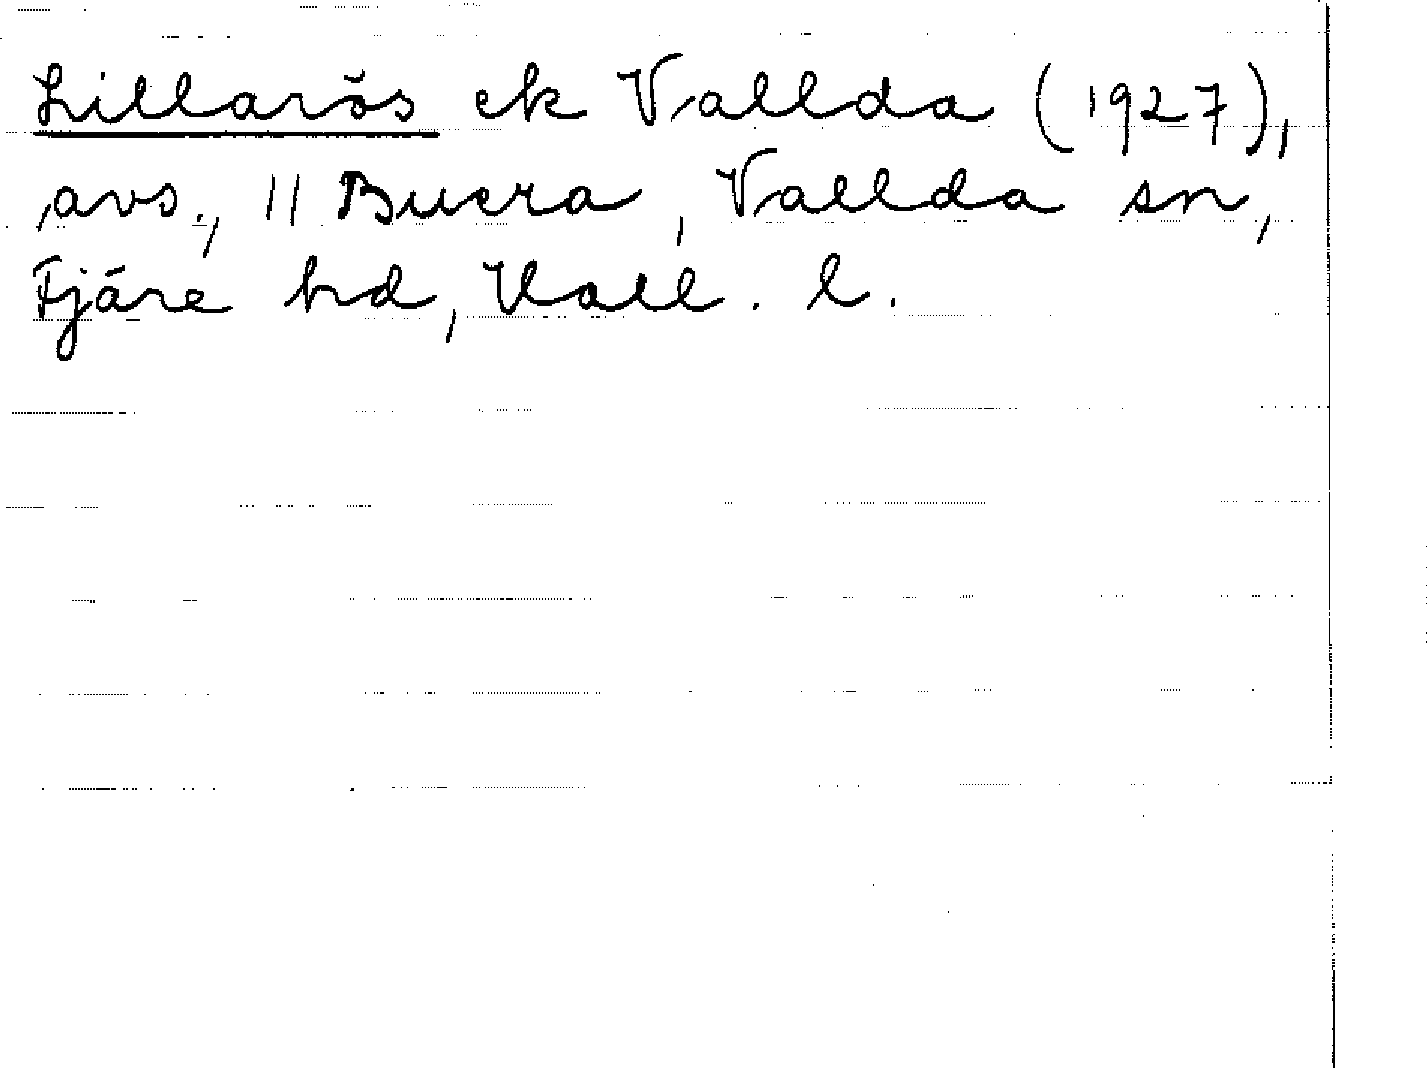 Lillarös ek Vallda (1927),
avs., 11 Buera, Vallda sn,
Fjäre hd, Hall. l.